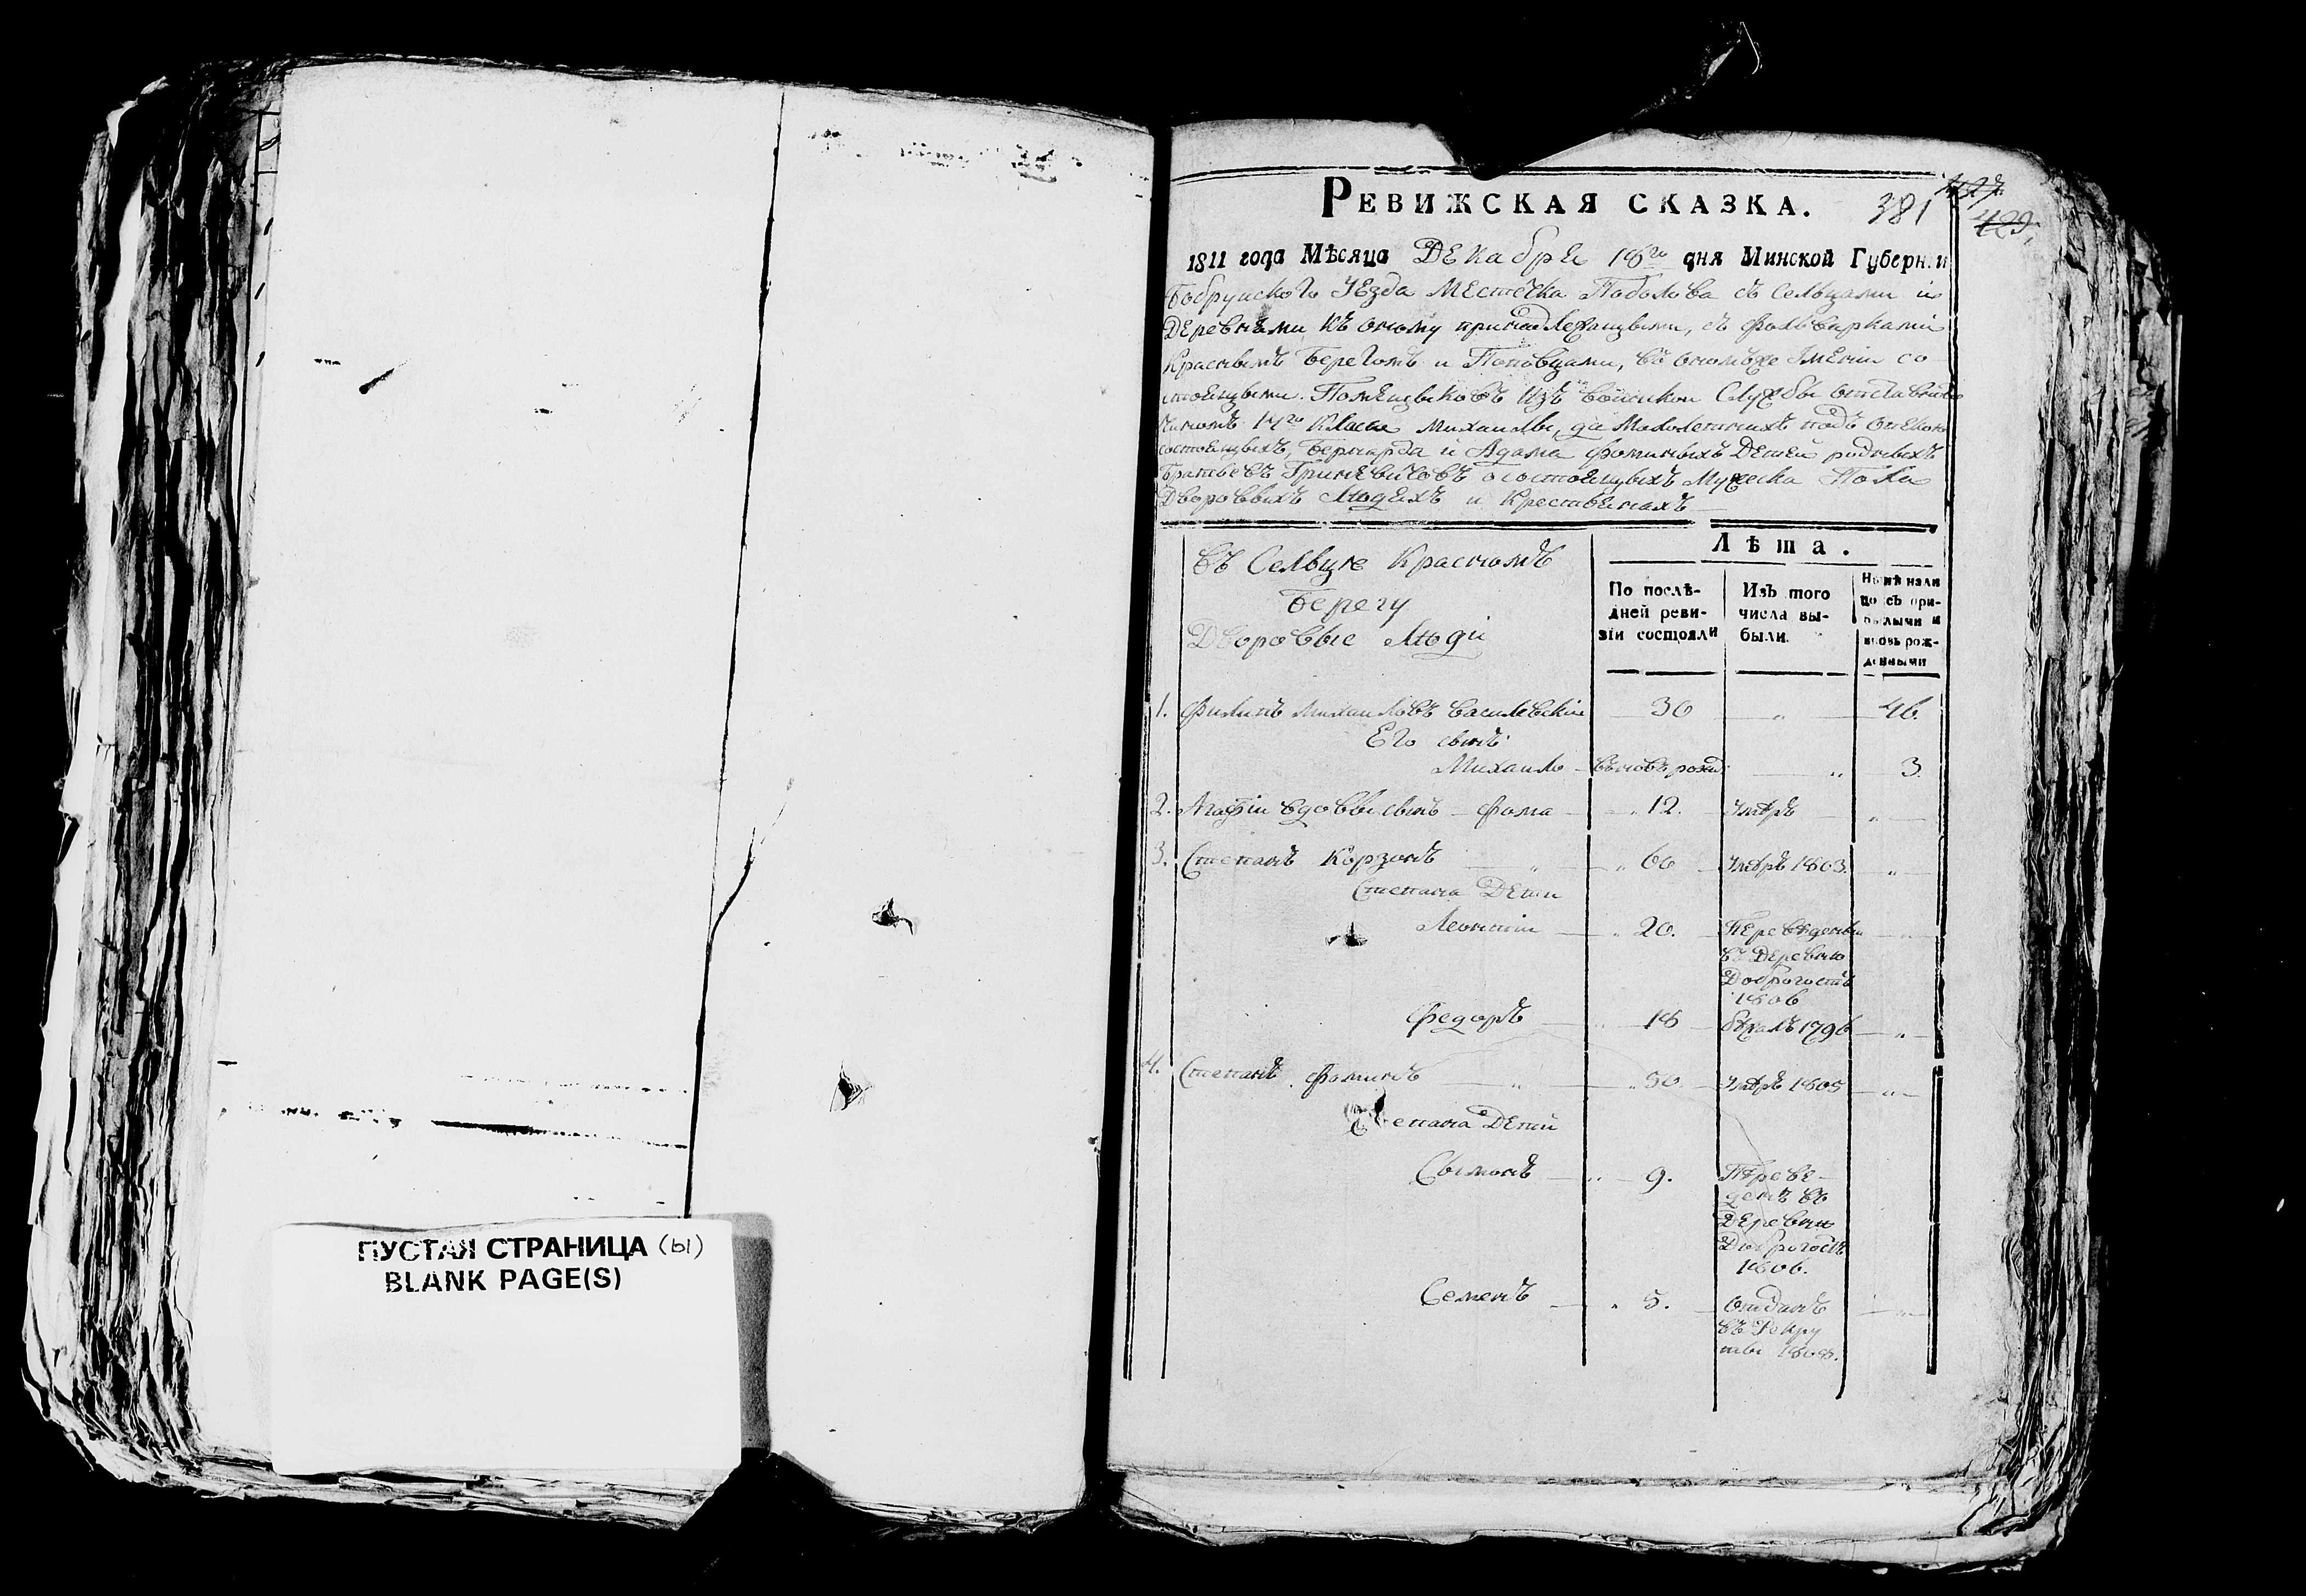 ПУСТАЯ СТРАНИЦА (ы)
BLANK PAGE(S)
427
429.
РЕВИЖСКАЯ СКАЗКА. 381
1811 года Мѣсяца Декабря 18го дня Минской Губерніи
Бобруйского Уезда Местечка Поболова съ Сельцами и
Деревнями къ оному принадлежащыми, съ фольварками
Краснымъ Берегомъ и Поповцами, въ ономъже Имении со
стоящыми. Помѣщыковъ изъ воинской Службы
чиномъ 14го Класса Михаилы, да Малолетнихъ подъ Опекою
состоящыхъ, Бернарда и Адама Фоминыхъ Детей родныхъ
Братьевъ Гриневичовъ о состоящыхъ Мужеска Пола
Дворовыхъ Людехъ и Крестьянахъ
въ Сельце Красномъ
Берегу
Дворовые Люди
Лѣта.
По послѣдней ревизіи состояли
Изъ того числа выбыли.
Нынѣ на лицо съ прибылыми и вновь рожденными
1. Филипъ Михаиловъ Василевскій 30 " 46.
Его сынъ
Михаило вновь рожд: " 3.
2. Агафіи вдовы сынъ Фома " 12. умеръ "
3. Степанъ Корзонъ " " 60 умеръ 1803. "
Степана Дети
Леонтій " 20. Переведенъ "
въ Деревню
Доброгостъ
1806
Федоръ " 18 бежалъ 1796 "
4. Степанъ Фоминъ " " 50. умеръ 1805 "
Степана Дети
Сымонъ " 9. Переве-
денъ въ
Деревню
Доброгость
1806.
Семенъ " 5. отданъ "
въ Рекру
ты 1808.